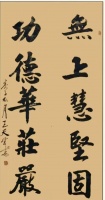 無上慧堅固
功德華莊嚴